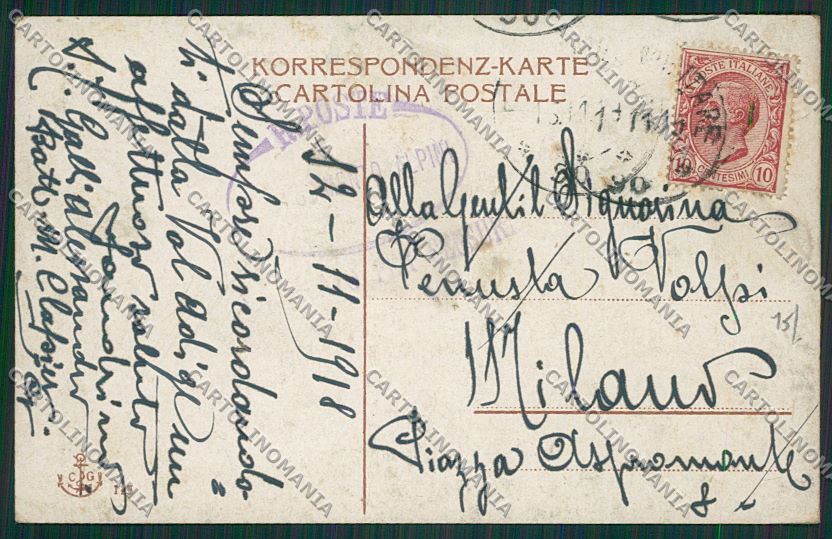 KORRESPONDENZ-KARTE
CARTOLINA POSTALE
POSTE ITALIANE
10 CENTESIMI 10
R. POSTE
ALPINO
12-11-1918
Sempre ricordando
ti dalla Val d'Adige un
affettuoso saluto
Sandrino
Galli Alessandro
Alla Gentil Signorina
Venusta Volpi
Milano
Piazza Aspromonte
8
15/
CARTOLINOMANIA